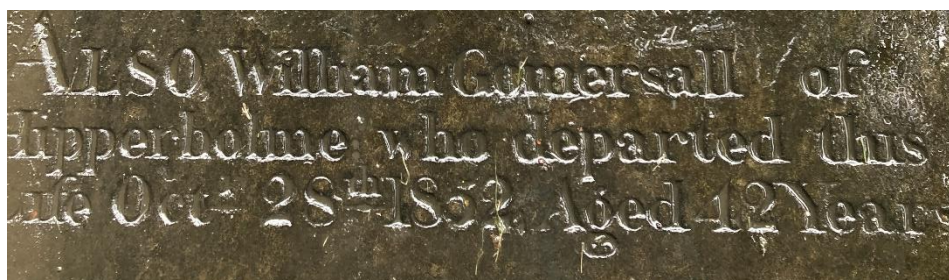 ALSO William Gomersall of
Hipperholme who departed this
Life Octr 28th 1852, Aged 42 Years